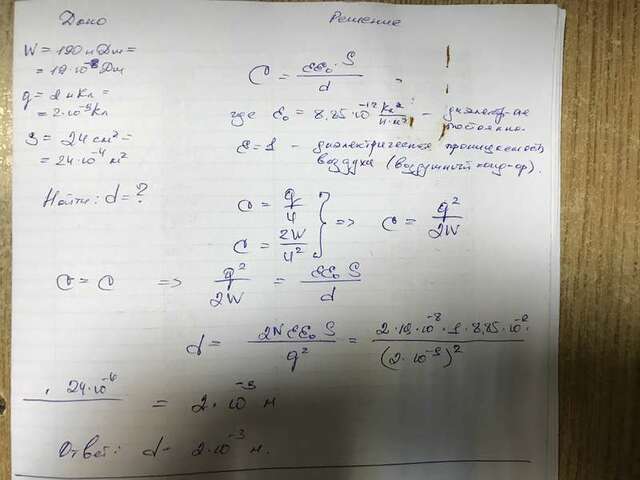 Дано
W = 190 нДж =
= 19·10⁻⁸ Дж
q = 2 нКл =
= 2·10⁻⁹ Кл
S = 24 см² =
= 24·10⁻⁴ м²
Найти: d = ?
Решение
C = εε₀·S/d,
где ε₀ = 8,85·10⁻¹² Кл²/Н·м² –
постоянно.
ε = 1 – диэлектрическая проницаемость
воздуха (воздушный конд-ор).
C = q/U
C = 2W/U² } => C = q²/2W
C = C => q²/2W = εε₀S/d
d = 2Wεε₀S/q² = 2·19·10⁻⁸·1·8,85·10⁻¹²·/(2·10⁻⁹)²
· 24·10⁻⁴ = 2·10⁻³ м
Ответ: d = 2·10⁻³ м.